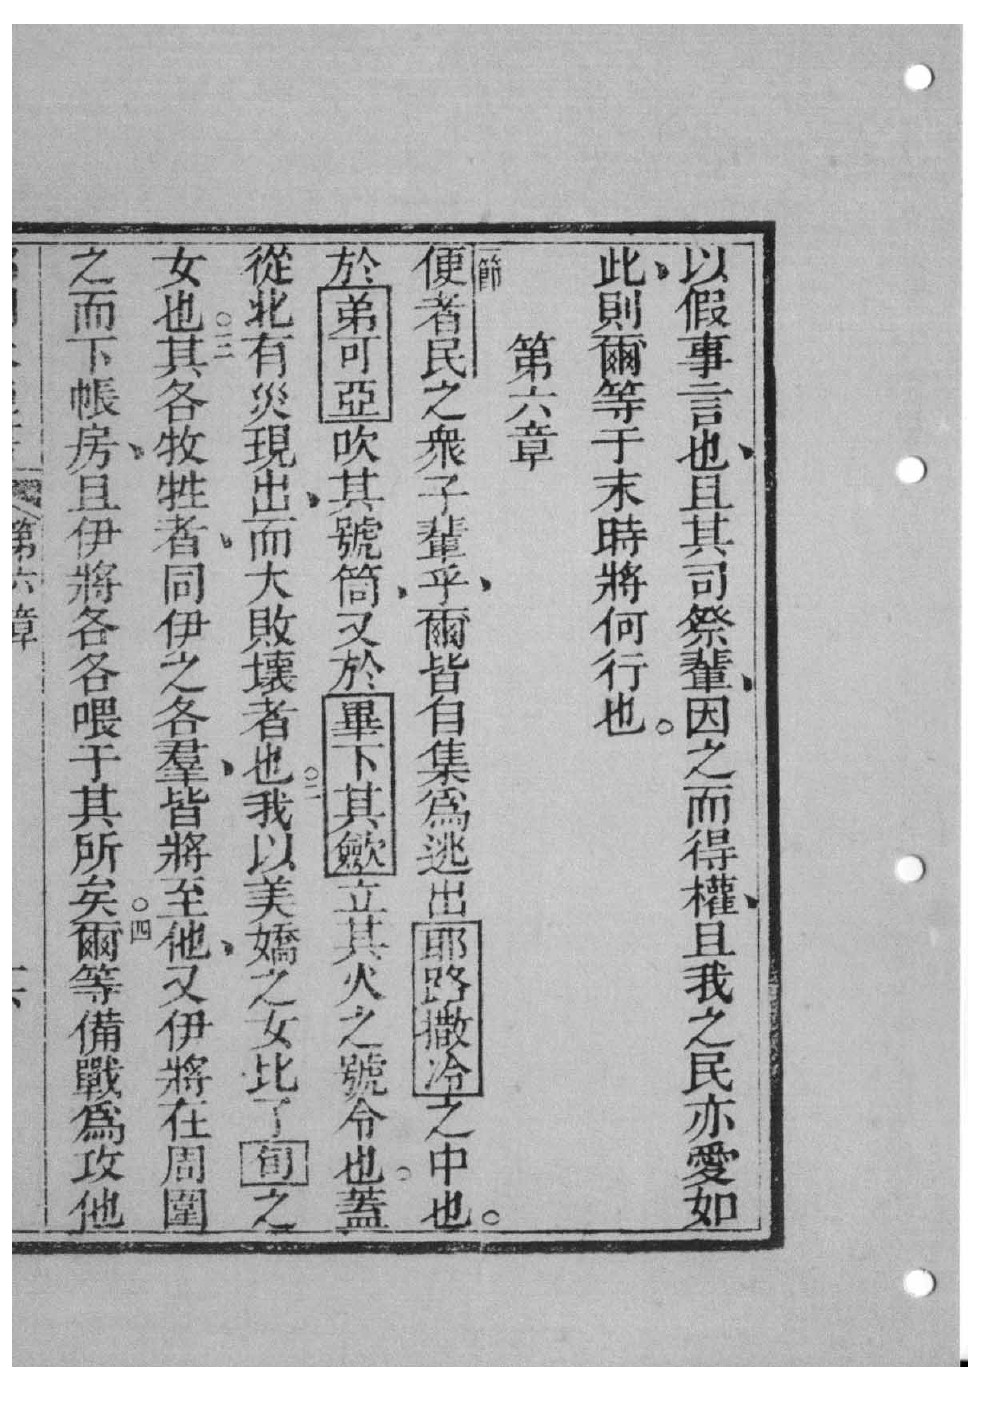 以假事言也、且其司祭輩、因之而得權、且我之民亦愛如
此、則爾等于末時將何行也。
第六章
一節便者民之衆子輩乎、爾皆自集爲逃出耶路撒冷之中也。
於弟可亞吹其號筒、又於畢下其歛立其火之號令也。蓋
從北有災現出、而大敗壞者也。二我以美嬌之女比了旬之
女也。三其各牧牲者、同伊之各羣、皆將至他、又伊將在周圍
之而下帳房、且伊將各各喂于其所矣。四爾等備戰爲攻他
第六章